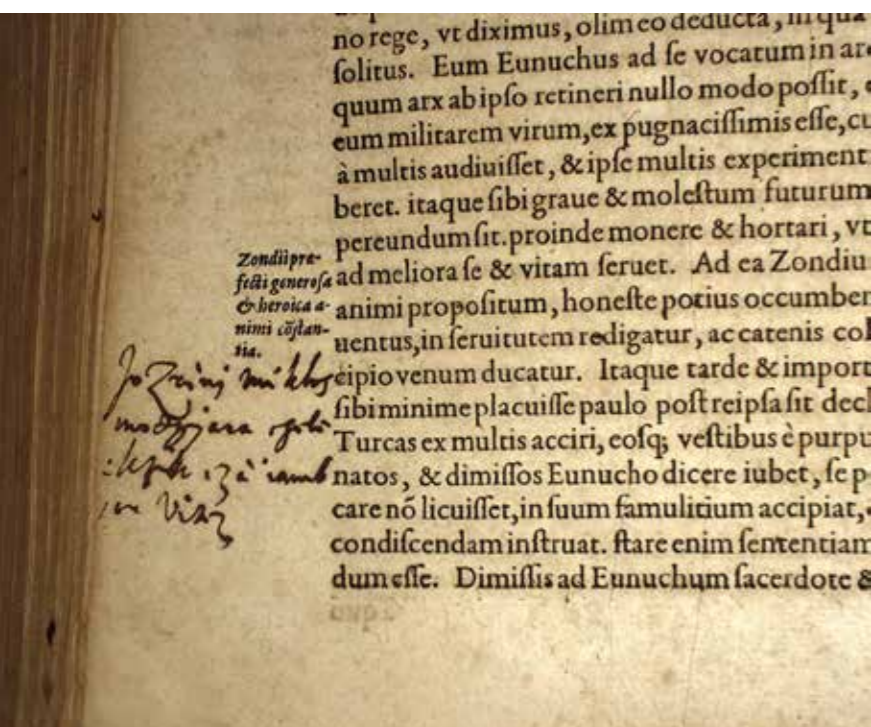 no rege, vt diximus, olim eo deducta, in qua
ſolitus. Eum Eunuchus ad ſe vocatum in arc
quum arx ab ipſo retineri nullo modo poſſit, e
eum militarem virum, ex pugnaciſſimis eſſe, cu
à multis audiuiſſet, & ipſe multis experiment
beret. itaque ſibi graue & moleſtum futurum
pereundum ſit. proinde monere & hortari, vt
Zondii præ-
fecti generoſa
& heroica a-
nimi cōſtan-
tia.
ad meliora ſe & vitam ſeruet. Ad ea Zondiu
animi propoſitum, honeſte potius occumber
uentus, in ſeruitutem redigatur, ac catenis col
cipio venum ducatur. Itaque tarde & import
ſibi minime placuiſſe paulo poſt reipſa ſit decl
Turcas ex multis acciri, eoſq; veſtibus è purpu
natos, & dimiſſos Eunucho dicere iubet, ſe p
care nō licuiſſet, in ſuum famulitium accipiat,
condiſcendam inſtruat. ſtare enim ſententiam
dum eſſe. Dimiſſis ad Eunuchum ſacerdote &
Jo Zrini miklos